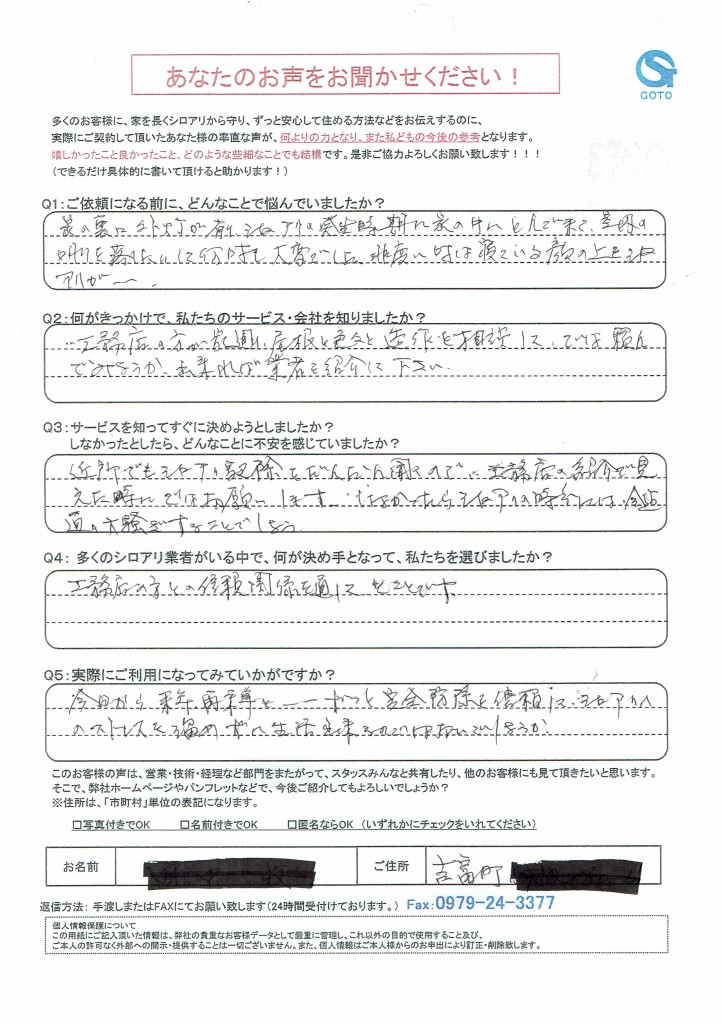 あなたのお声をお聞かせください！
GOTO
多くのお客様に、家を長くシロアリから守り、ずっと安心して住める方法などをお伝えするのに、
実際にご契約して頂いたあなた様の率直な声が、何よりの力となり、また私どもの今後の参考となります。
嬉しかったこと良かったこと、どのような些細なことでも結構です。是非ご協力よろしくお願い致します！！！
（できるだけ具体的に書いて頂けると助かります！）
Q1：ご依頼になる前に、どんなことで悩んでいましたか？
家の裏に外灯が有り、シロアリの発生時期に家の中に飛んで来て、室内の
明りを暗くして何時も大変でした。非度い時は寝ている顔の上をシロ
アリが〜。
Q2：何がきっかけで、私たちのサービス・会社を知りましたか？
工務店の方が
業者を紹介して下さい。
Q3：サービスを知ってすぐに決めようとしましたか？
しなかったとしたら、どんなことに不安を感じていましたか？
近所でもシロアリ 工務店の紹介で見
えた時に ではお願いします。 シロアリの時分には
大騒ぎすることでしょう
Q4： 多くのシロアリ業者がいる中で、何が決め手となって、私たちを選びましたか？
工務店の方との信頼関係を通して
Q5：実際にご利用になってみていかがですか？
今日から来年 完全防除を信頼して シロアリへ
のストレスを溜めずに生活出来るのではないでしょうか
このお客様の声は、営業・技術・経理など部門をまたがって、スタッスみんなと共有したり、他のお客様にも見て頂きたいと思います。
そこで、弊社ホームページやパンフレットなどで、今後ご紹介してもよろしいでしょうか？
※住所は、「市町村」単位の表記になります。
□写真付きでOK □名前付きでOK □匿名ならOK （いずれかにチェックをいれてください）
お名前 ご住所 吉富町
返信方法： 手渡しまたはFAXにてお願い致します（24時間受付けております。） Fax：0979-24-3377
個人情報保護について
この用紙にご記入頂いた情報は、弊社の貴重なお客様データとして厳重に管理し、これ以外の目的で使用すること及び、
ご本人の許可なく外部への開示・提供することは一切ございません。また、個人情報はご本人様からのお申出により訂正・削除致します。